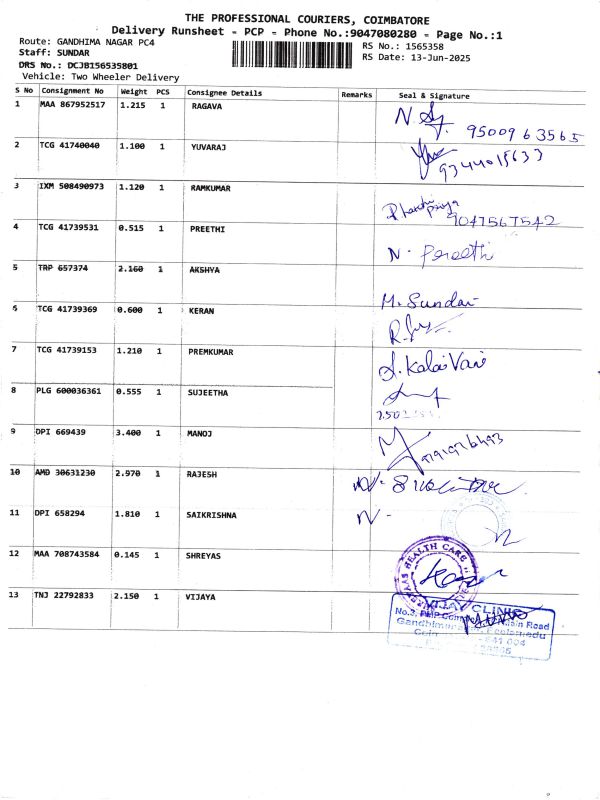 THE PROFESSIONAL COURIERS, COIMBATORE
Delivery Runsheet - PCP - Phone No.:9047080280 - Page No.:1
Route: GANDHIMA NAGAR PC4
RS No.: 1565358
Staff: SUNDAR
RS Date: 13-Jun-2025
DRS No.: DCJB156535801
Vehicle: Two Wheeler Delivery
S No Consignment No Weight PCS Consignee Details Remarks Seal & Signature
1 MAA 867952517 1.215 1 RAGAVA
9500963565
2 TCG 41740040 1.100 1 YUVARAJ
9344015633
3 IXM 508490973 1.120 1 RAMKUMAR
9047567542
4 TCG 41739531 0.515 1 PREETHI
N. Preethi
5 TRP 657374 2.160 1 AKSHYA
M. Sundar
6 TCG 41739369 0.600 1 KERAN
7 TCG 41739153 1.210 1 PREMKUMAR
S. KalaiVani
8 PLG 600036361 0.555 1 SUJEETHA
9 DPI 669439 3.400 1 MANOJ
10 AMD 30631230 2.970 1 RAJESH
11 DPI 658294 1.810 1 SAIKRISHNA
N -
12 MAA 708743584 0.145 1 SHREYAS
HEALTH CARE
13 TNJ 22792833 2.150 1 VIJAYA
VIJAY CLINIC
Main Road